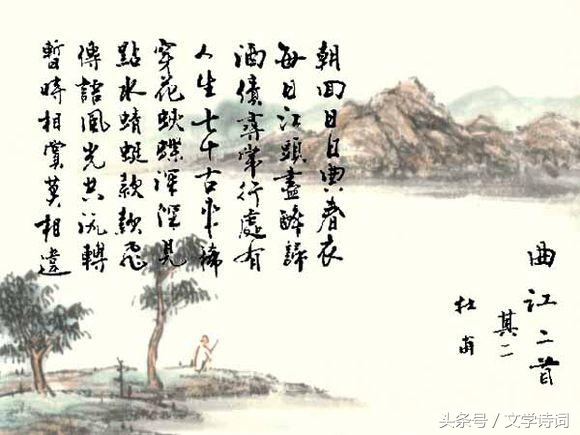 曲江二首
其二
杜甫
朝回日日典春衣
每日江頭盡醉歸
酒債尋常行處有
人生七十古來稀
穿花蛺蝶深深見
點水蜻蜓款款飛
傳語風光共流轉
暫時相賞莫相違
头条号/文学诗词